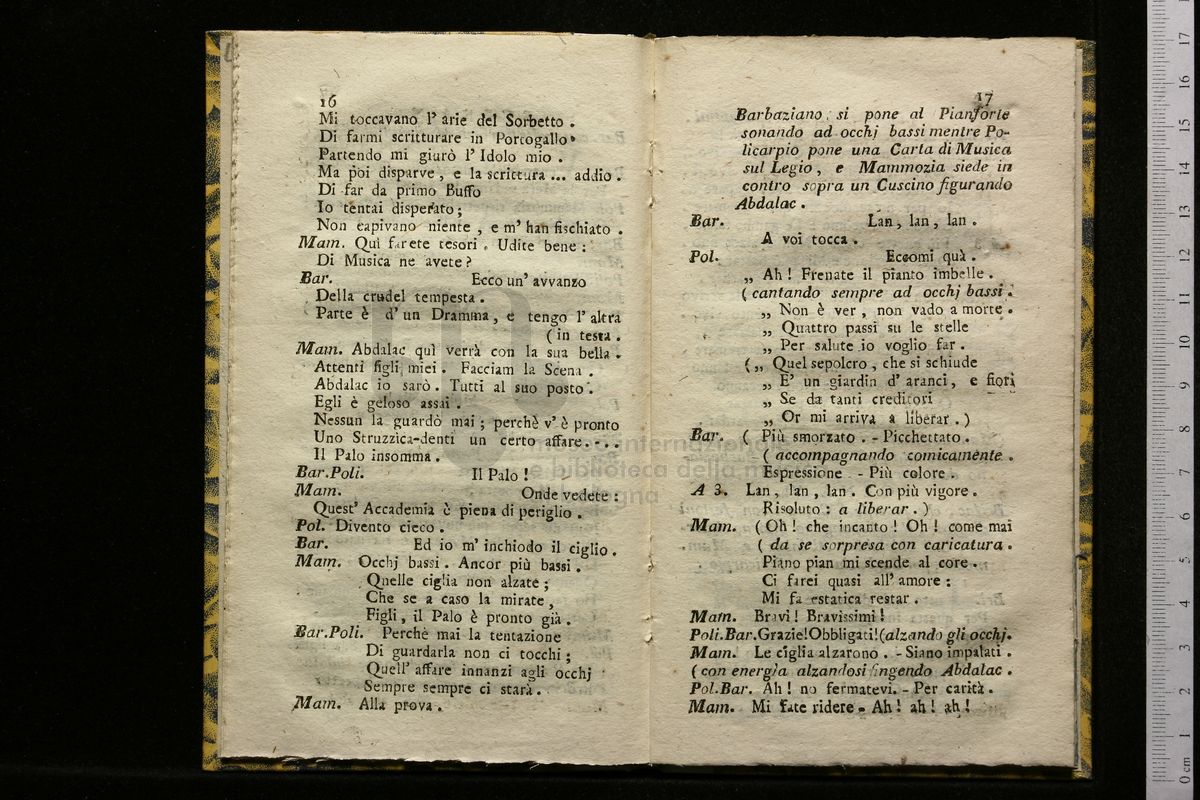 16
Mi toccavano l' arie del Sorbetto .
Di farmi scritturare in Portogallo.
Partendo mi giurò l' Idolo mio .
Ma poi disparve , e la scrittura ... addio .
Di far da primo Buffo
Io tentai disperato ;
Non capivano niente , e m' han fischiato .
Mam. Quì farete tesori . Udite bene :
Di Musica ne avete ?
Bar. Ecco un' avvanzo
Della crudel tempesta .
Parte è d' un Dramma , e tengo l' altra
( in testa .
Mam. Abdalac quì verrà con la sua bella .
Attenti figli miei . Facciam la Scena .
Abdalac io sarò . Tutti al suo posto .
Egli è geloso assai .
Nessun la guardò mai ; perchè v' è pronto
Uno Struzzica-denti un certo affare. - . .
Il Palo insomma .
Bar.Poli. Il Palo !
Mam. Onde vedete :
Quest' Accademia è piena di periglio .
Pol. Divento cieco .
Bar. Ed io m' inchiodo il ciglio .
Mam. Occhj bassi . Ancor più bassi .
Quelle ciglia non alzate ;
Che se a caso la mirate ,
Figli , il Palo è pronto già .
Bar.Poli. Perchè mai la tentazione
Di guardarla non ci tocchi ;
Quell' affare innanzi agli occhj
Sempre sempre ci starà .
Mam. Alla prova .
17
Barbaziano si pone al Pianforte
sonando ad occhj bassi mentre Po-
licarpio pone una Carta di Musica
sul Legio , e Mammozia siede in
contro sopra un Cuscino figurando
Abdalac .
Bar. Lan , lan , lan .
A voi tocca .
Pol. Eccomi quà .
„ Ah ! Frenate il pianto imbelle .
( cantando sempre ad occhj bassi .
„ Non è ver , non vado a morte .
„ Quattro passi su le stelle
„ Per salute io voglio far .
( „ Quel sepolcro , che si schiude
„ E' un giardin d' aranci , e fiori
„ Se da tanti creditori
„ Or mi arriva a liberar . )
Bar. ( Più smorzato . - Picchettato .
( accompagnando comicamente .
Espressione . - Più colore .
A 3. Lan , lan , lan . Con più vigore .
Risoluto : a liberar . )
Mam. ( Oh ! che incanto ! Oh ! come mai
( da se sorpresa con caricatura .
Piano pian mi scende al core .
Ci farei quasi all' amore :
Mi fa estatica restar .
Mam. Bravi ! Bravissimi !
Poli.Bar.Grazie!Obbligati!(alzando gli occhj.
Mam. Le ciglia alzarono . - Siano impalati .
( con energia alzandosi fingendo Abdalac .
Pol.Bar. Ah ! no fermatevi. - Per carità .
Mam. Mi fate ridere - Ah ! ah ! ah !